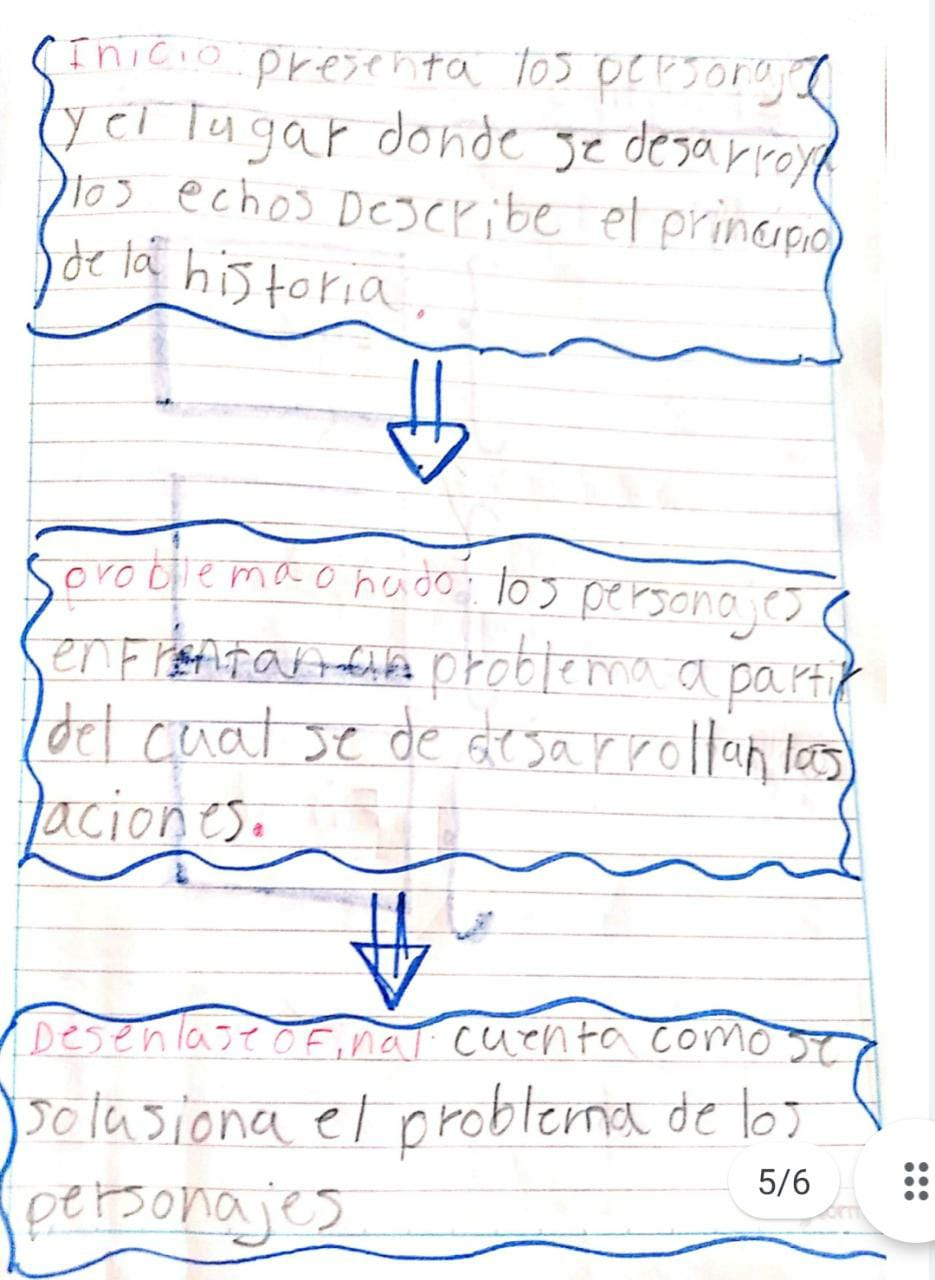 Inicio. presenta los personajes
y el lugar donde se desarroya
los echos Describe el principio
de la historia.
problema o nudo: los personajes
enFrentan un problema a partir
del cual se de desarrollan las
aciones.
Desenlase o Final. cuenta como se
solusiona el problema de los
personajes
5/6